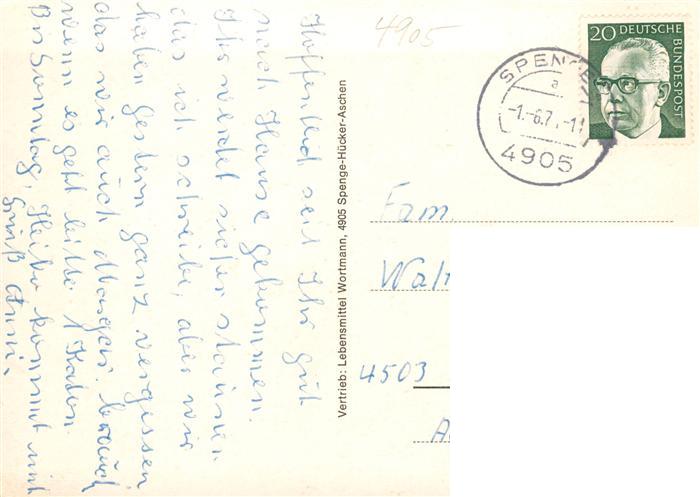 Hoffentlich seit Ihr gut
nach Hause gekommen.
Ihr werdet sicher staunen
das ich schreibe, aber wir
haben gestern ganz vergessen
das wir auch Morgen brauch
wenn es geht bitte 1 Karton
Bis Sonntag, Heike kommt mit
Gruß Anni.
Vertrieb: Lebensmittel Wortmann, 4905 Spenge-Hücker-Aschen
4905
20 DEUTSCHE
BUNDESPOST
SPENGE
a
-1.-6.7
4905
Fam.
Walt
4503